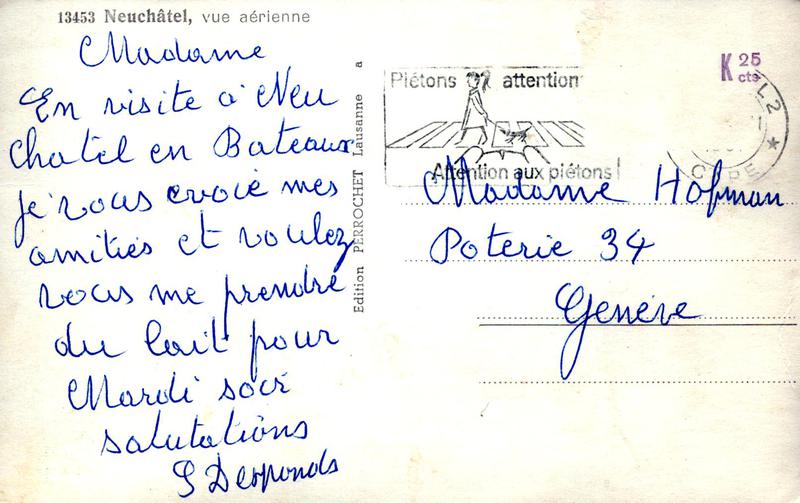 13453 Neuchâtel, vue aérienne
Madame
En visite a Neu
chatel en Bateaux
je vous envoie mes
amitiés et voulez
vous me prendre
du lait pour
Mardi soir
salutations
Edition PERROCHET Lausanne a
Piétons attention
Attention aux piétons!
K 25
cts
Madame Hofman
Poterie 34
Genève